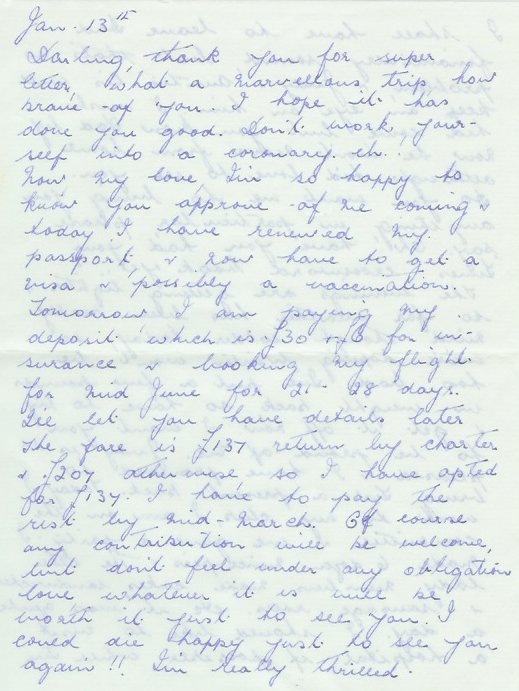 Jan. 13th
Darling, thank you for super
letter, what a marvellous trip how
brave of you. I hope it has
done you good. Don't work your-
self into a coronary. eh..
Now my love, I'm so happy to
know you approve of me coming &
today I have renewed my
passport, & now have to get a
visa & possibly a vaccination.
Tomorrow I am paying my
deposit which is £30 + £6 for in-
surance & booking my flight
for mid June for 21 - 28 days.
I'll let you have details later
The fare is £137 return by charter
& £207 otherwise so I have opted
for £137. I have to pay the
rest by mid-March. Of course
any contribution will be welcome,
but don't feel under any obligation
love whatever it is will be
worth it just to see you. I
could die happy just to see you
again!! I'm really thrilled.